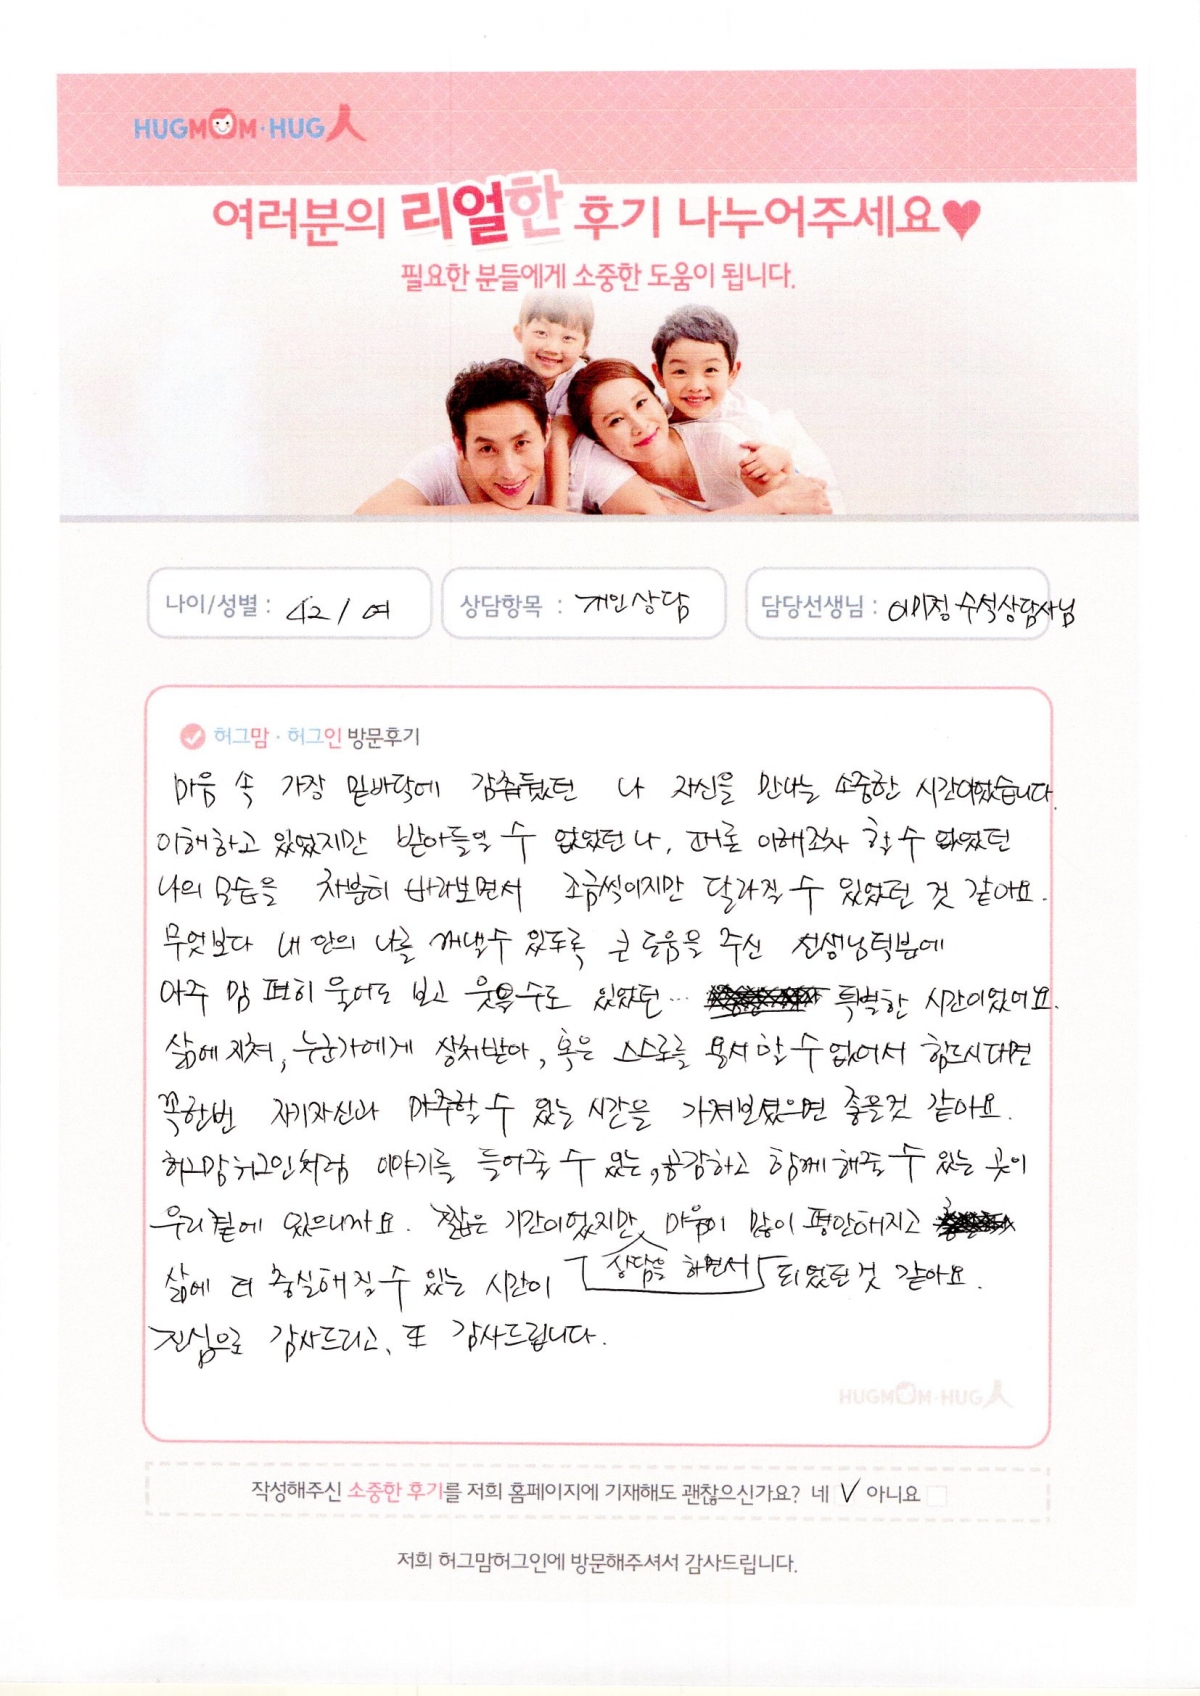 HUGMOM·HUG人
여러분의 리얼한 후기 나누어주세요♥
필요한 분들에게 소중한 도움이 됩니다.
나이/성별 : 42 / 여
상담항목 : 개인상담
담당선생님 : 이미정 수석상담사님
허그맘·허그인 방문후기
마음 속 가장 밑바닥에 감춰뒀던 나 자신을 만나는 소중한 시간이었습니다.
이해하고 있었지만 받아들일 수 없었던 나, 때론 이해조차 할 수 없었던
나의 모습을 차분히 바라보면서 조금씩이지만 달라질 수 있었던 것 같아요.
무엇보다 내 안의 나를 깨낼수 있도록 큰 도움을 주신 선생님덕분에
아주 맘 편히 울어도 보고 웃을수도 있었던… 특별한 시간이었어요.
삶에 지쳐, 누군가에게 상처받아, 혹은 스스로를 용서할 수 없어서 힘드시다면
꼭한번 자기자신과 마주할 수 있는 시간을 가져보셨으면 좋을것 같아요.
허그맘허그인처럼 이야기를 들어줄 수 있는, 공감하고 함께 해줄 수 있는 곳이
우리곁에 있으니까요. 짧은 기간이었지만 마음이 많이 평안해지고
상담을 하면서
삶에 더 충실해질 수 있는 시간이 되었던 것 같아요.
진심으로 감사드리고, 또 감사드립니다.
HUGMOM·HUG人
작성해주신 소중한 후기를 저희 홈페이지에 기재해도 괜찮으신가요? 네 V 아니요
저희 허그맘허그인에 방문해주셔서 감사드립니다.